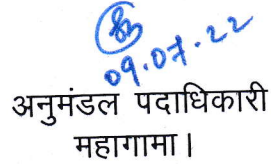 09.07.22
अनुमंडल पदाधिकारी
महागामा।